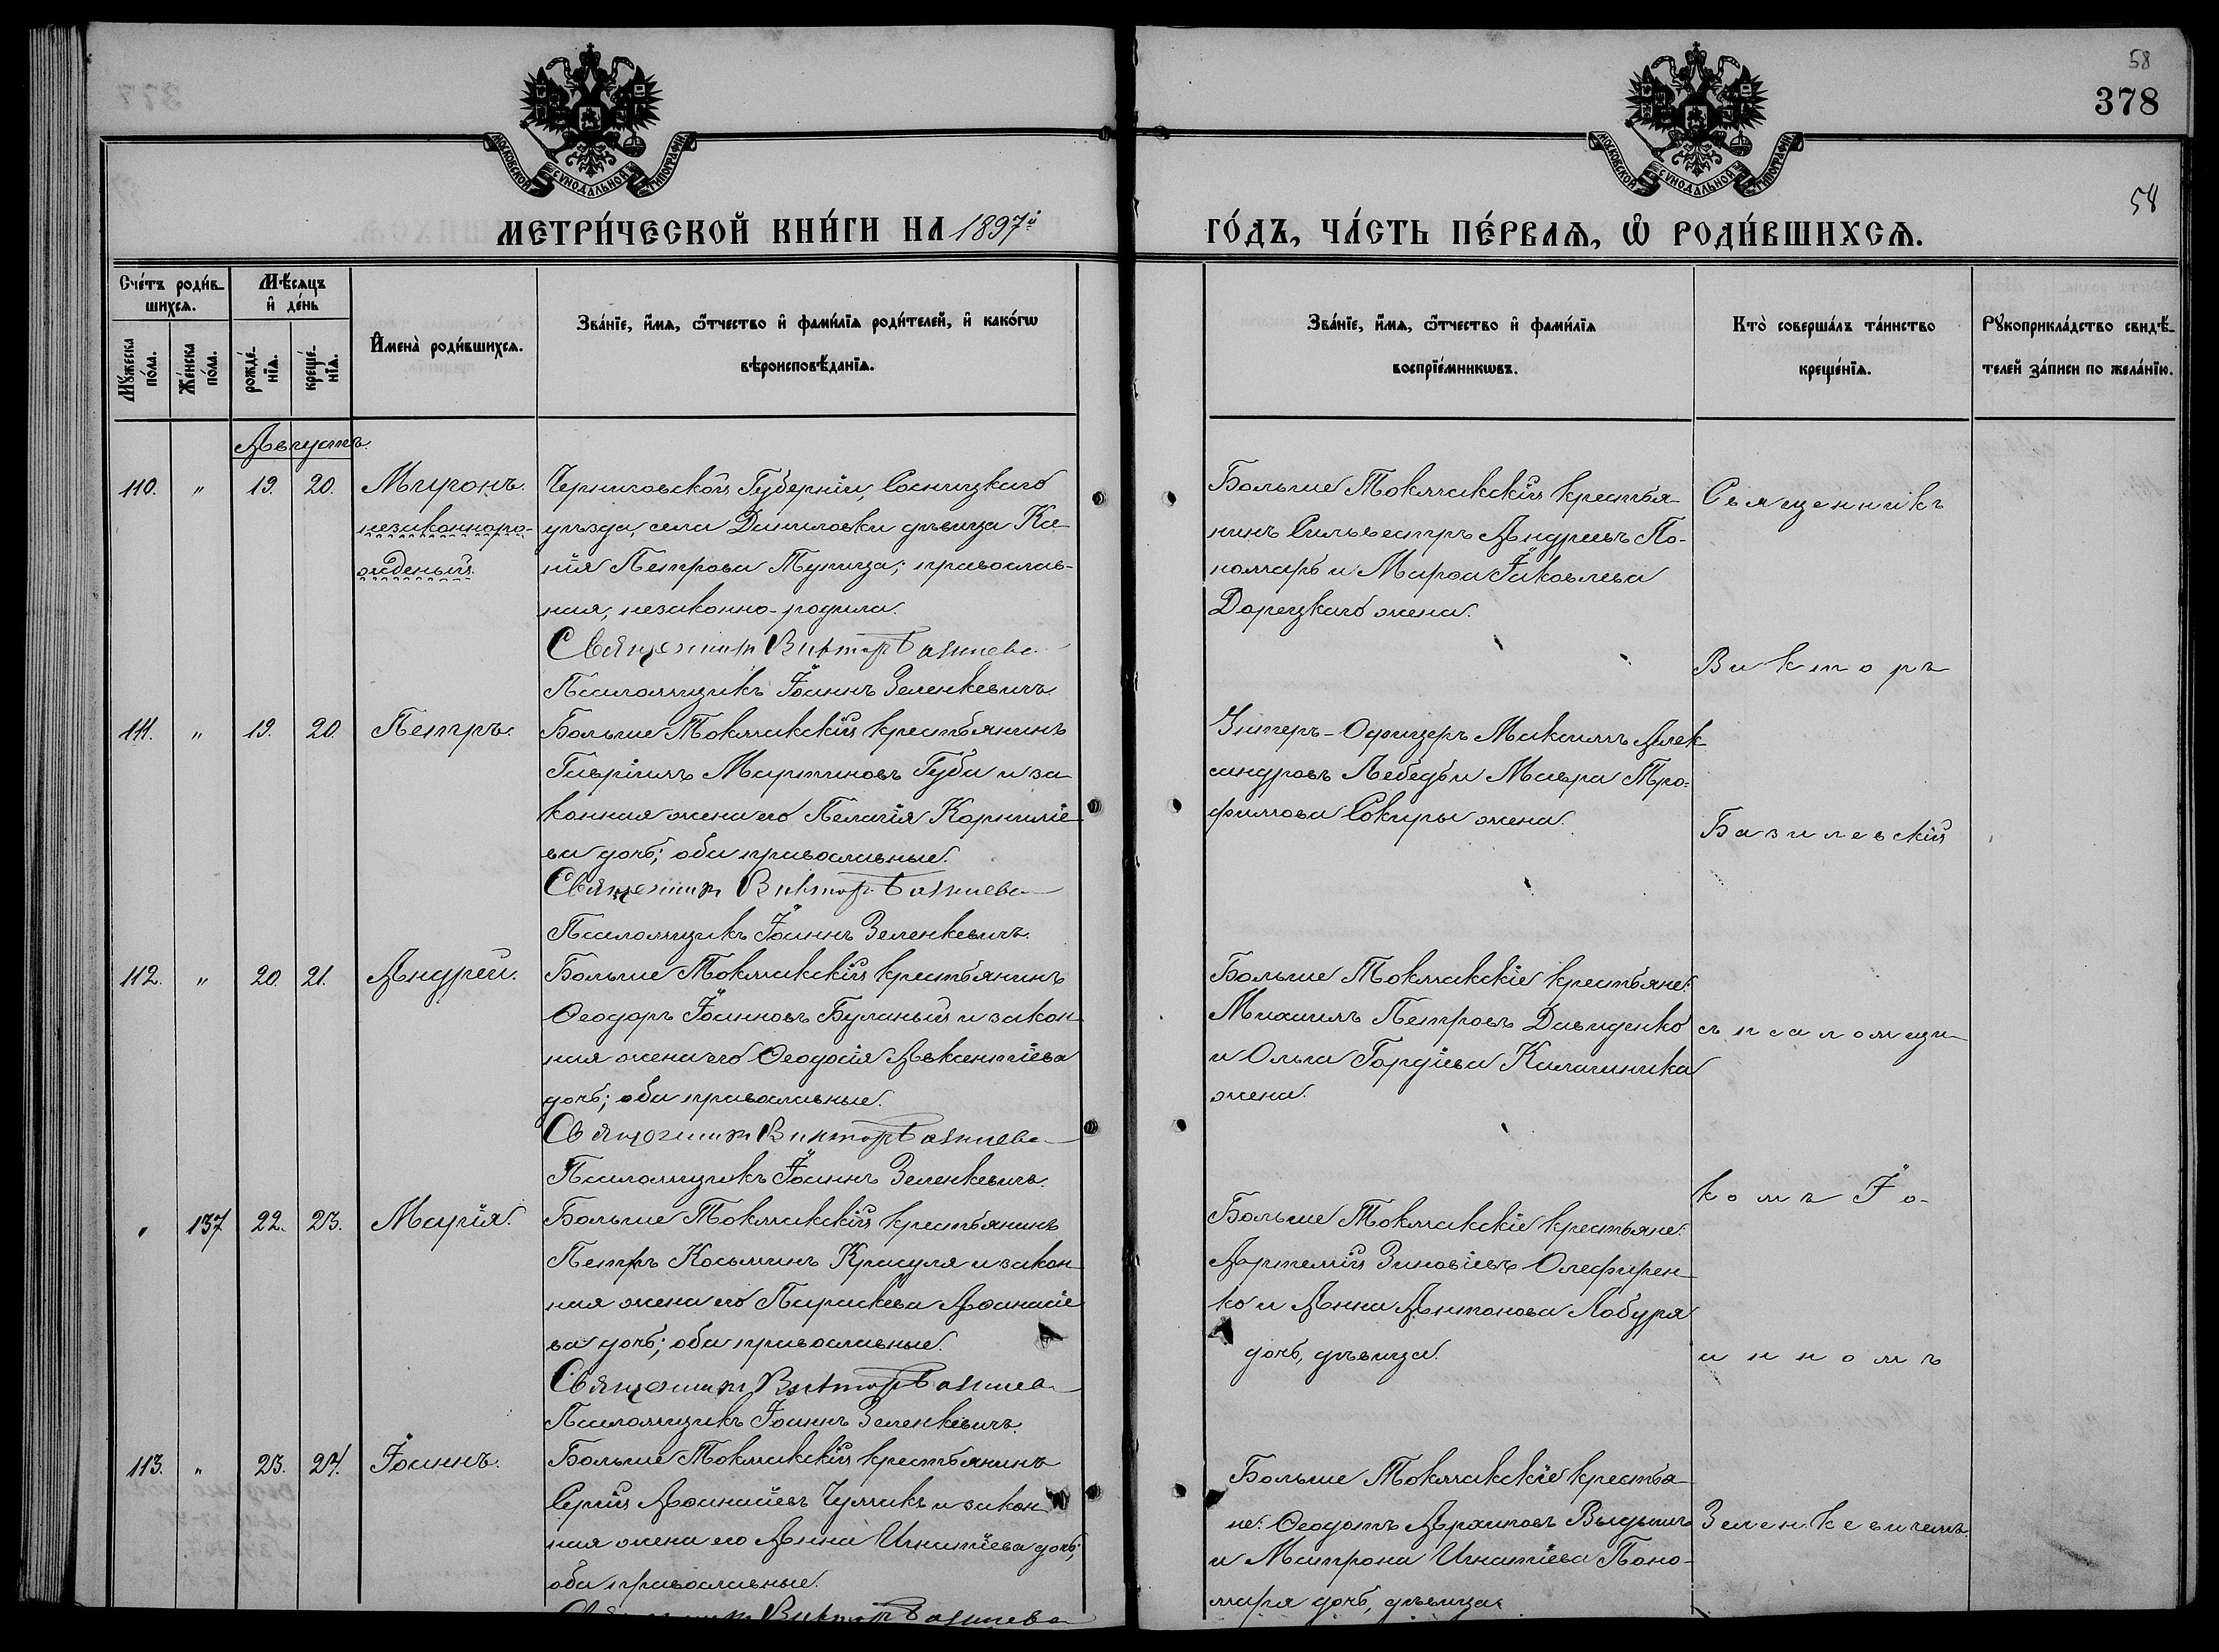 377
58
378
58
МОСКОВСКОЙ СѴНОДАЛЬНОЙ ТИПОГРАФІИ
МОСКОВСКОЙ СѴНОДАЛЬНОЙ ТИПОГРАФІИ
МЕТРИ́ЧЕСКОЙ КНИ́ГИ НА 1897й
ГО́ДЪ, ЧА́СТЬ ПЕ́РВАѦ, Ѡ҆ РОДИ́ВШИХСѦ.
Сче́тъ роди́в-
шихсѧ.
Мꙋ́жеска по́ла.
Же́нска по́ла.
Мѣ́сѧцъ
и҆ де́нь
рожде́-
нїѧ.
креще́-
нїѧ.
И҆мена̀ роди́вшихсѧ.
Зва́нїе, и҆́мѧ, ѻ҆́тчество и҆ фами́лїѧ роди́телей, и҆ како́гѡ
вѣроисповѣ́данїѧ.
Зва́нїе, и҆́мѧ, ѻ҆́тчество и҆ фами́лїѧ
воспрїе́мникѡвъ.
Кто̀ соверша́лъ та́инство
креще́нїѧ.
Рꙋкоприкла́дство свидѣ́-
телей за́писи по жела́нїю.
Августъ.
110. " 19. 20. Миронъ.
незаконноро-
жденый.
Черниговской Губерніи, Сосницкаго
уѣзда, села Даниловки дѣвица Ка-
нія Петрова Тупица; православ-
ная, незаконно-родила.
Священник Виктор Базилев
Псаломщикъ Іоаннъ Зеленкевичъ
Больше Токмакскій крестья-
нинъ Сильвестръ Андреевъ По-
номарь и Марѳа Іаковлева
Дорецкаго жена.
111. " 19. 20. Петръ.
Больше Токмакскій крестьянинъ
Гавріилъ Мартиновъ Губа и за-
конная жена его Пелагія Корниліе
ва дочь; оба православные.
Священник Виктор Базилев
Псаломщикъ Іоаннъ Зеленкевичъ.
Унтеръ-Офицеръ Максимъ Алек
сандровъ Лебедь и Мавра Тро-
фимова Сокиры жена.
112. " 20. 21. Андрей.
Больше Токмакскій крестьянинъ
Ѳеодоръ Іоанновъ Буланый и закон
ная жена его Ѳеодосія Авксентіева
дочь; оба православные.
Священник Виктор Базилев
Псаломщикъ Іоаннъ Зеленкевичъ.
Больше Токмакскіе крестьяне:
Михаилъ Петровъ Давиденко
и Ольга Гордіева Калашника
жена.
" 137 22. 23. Марія.
Больше Токмакскій крестьянинъ
Петръ Косьминъ Красуля и закон
ная жена его Параскева Аѳанасіе
ва дочь; оба православные.
Священник Виктор Базилев
Псаломщикъ Іоаннъ Зеленкевичъ.
Больше Токмакскіе крестьяне:
Артемій Зиновіевъ Олефирен-
ко и Анна Антонова Лобуря
дочь, дѣвица.
113. " 23. 24. Іоаннъ.
Больше Токмакскій крестьянинъ
Сергій Аѳанасіевъ Чумакъ и закон
ная жена его Анна Игнатіева дочь;
оба православные.
Священник Виктор Базилев
Больше Токмакскіе крестья-
не: Ѳеодотъ Архиповъ
и Матрона Игнатіева Поно-
маря дочь, дѣвица.
Священникъ
Викторъ
Базилевскій
съ псаломщи-
комъ Іо-
анномъ
Зеленкевичемъ.